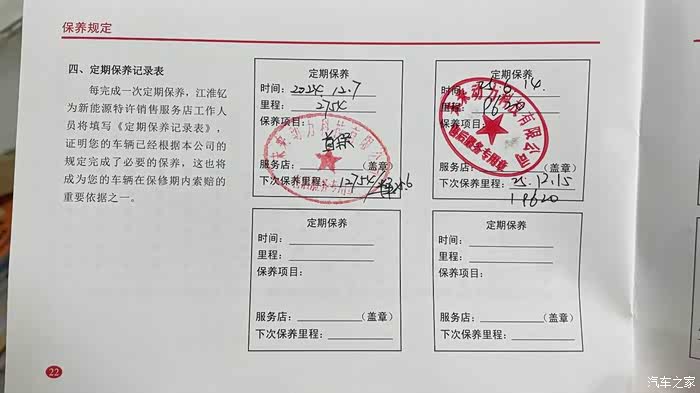 保养规定
四、定期保养记录表
每完成一次定期保养，江淮钇
为新能源特许销售服务店工作人
员将填写《定期保养记录表》，
证明您的车辆已经根据本公司的
规定完成了必要的保养，这也将
成为您的车辆在保修期内索赔的
重要依据之一。
定期保养
时间：2024 12.7
里程：2754
保养项目：
首保
服务店：（盖章）
下次保养里程：12754
定期保养
时间：25.6.14.
里程：
保养项目：
有限公司
服务店：（盖章）
下次保养里程：25.12.15
19620
定期保养
时间：
里程：
保养项目：
服务店：（盖章）
下次保养里程：
定期保养
时间：
里程：
保养项目：
服务店：（盖章）
下次保养里程：
22
汽车之家